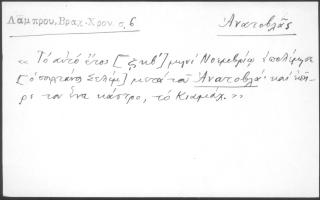 Λάμπρου, Βραχ. Χρον. σ. 6 Ἀνατοβλᾶς
« Τὸ αὐτὸ ἔτος [ζκβ´] μηνὶ Νοεμβρίῳ ἐπολέμησε
[ὁ σουλτάνος Σελὴμ] μετὰ τοῦ Ἀνατοβλᾶ· καὶ ἐπῆ-
ρε τον ἕνα κάστρο, τὸ Κιαμάχ. »